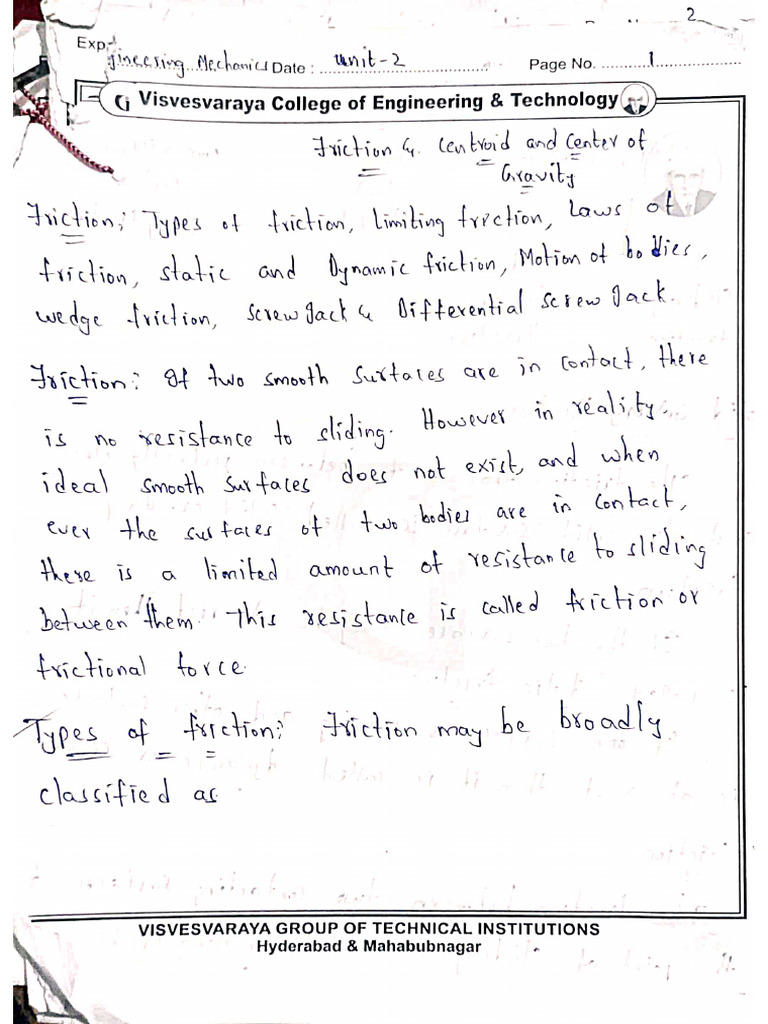 2
Exp
gineering Mechanics Date : unit-2 Page No. 1
Visvesvaraya College of Engineering & Technology
Friction & Centroid and Center of
Gravity
Friction; Types of friction, Limiting friction, Laws of
friction, static and Dynamic friction, Motion of bodies,
wedge friction, screw Jack & Differential screw Jack.
Friction: If two smooth surfaces are in contact, there
is no resistance to sliding. However in reality.
ideal smooth surfaces does not exist, and when
ever the surfaces of two bodies are in contact,
there is a limited amount of resistance to sliding
between them. This resistance is called friction or
frictional force.
Types of friction: Friction may be broadly
classified as
VISVESVARAYA GROUP OF TECHNICAL INSTITUTIONS
Hyderabad & Mahabubnagar